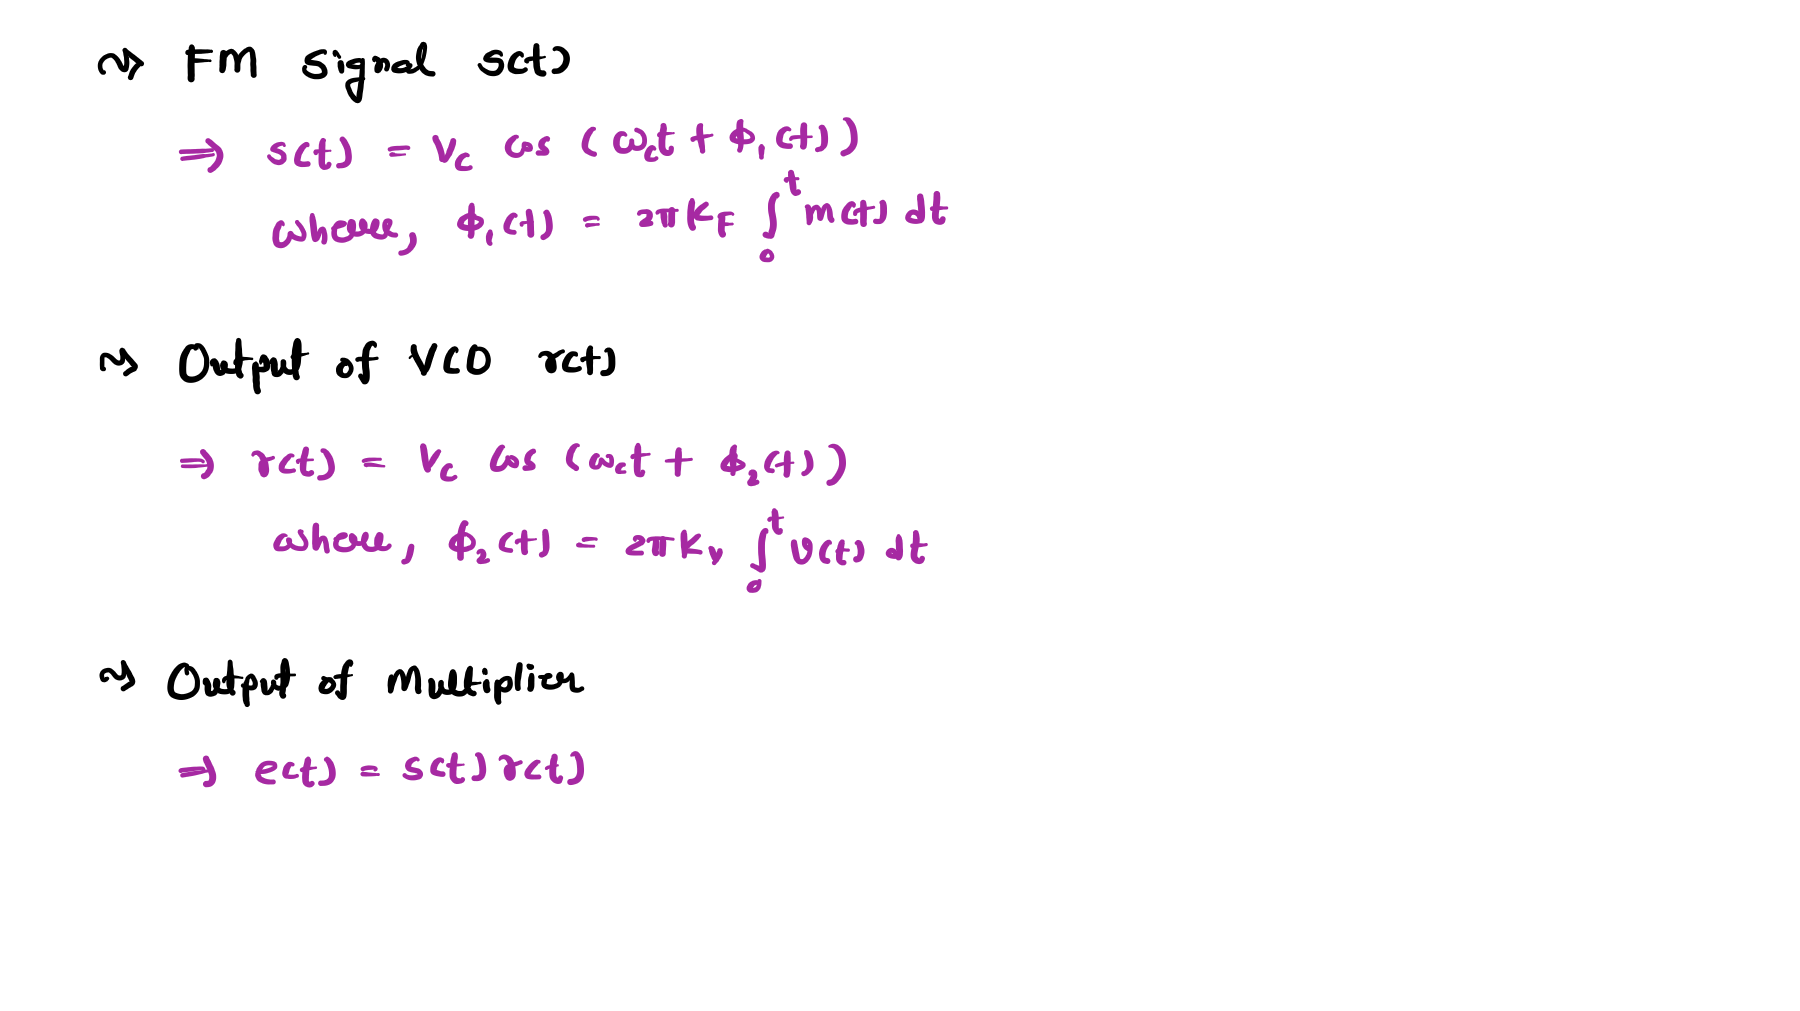 ~> FM Signal s(t)
⇒ s(t) = Vc cos (ωct + ϕ₁(t))
where, ϕ₁(t) = 2πKF ∫₀ᵗ m(t) dt
~> Output of VCO r(t)
⇒ r(t) = Vc cos (ωct + ϕ₂(t))
where, ϕ₂(t) = 2πKv ∫₀ᵗ v(t) dt
~> Output of Multiplier
⇒ e(t) = s(t) r(t)